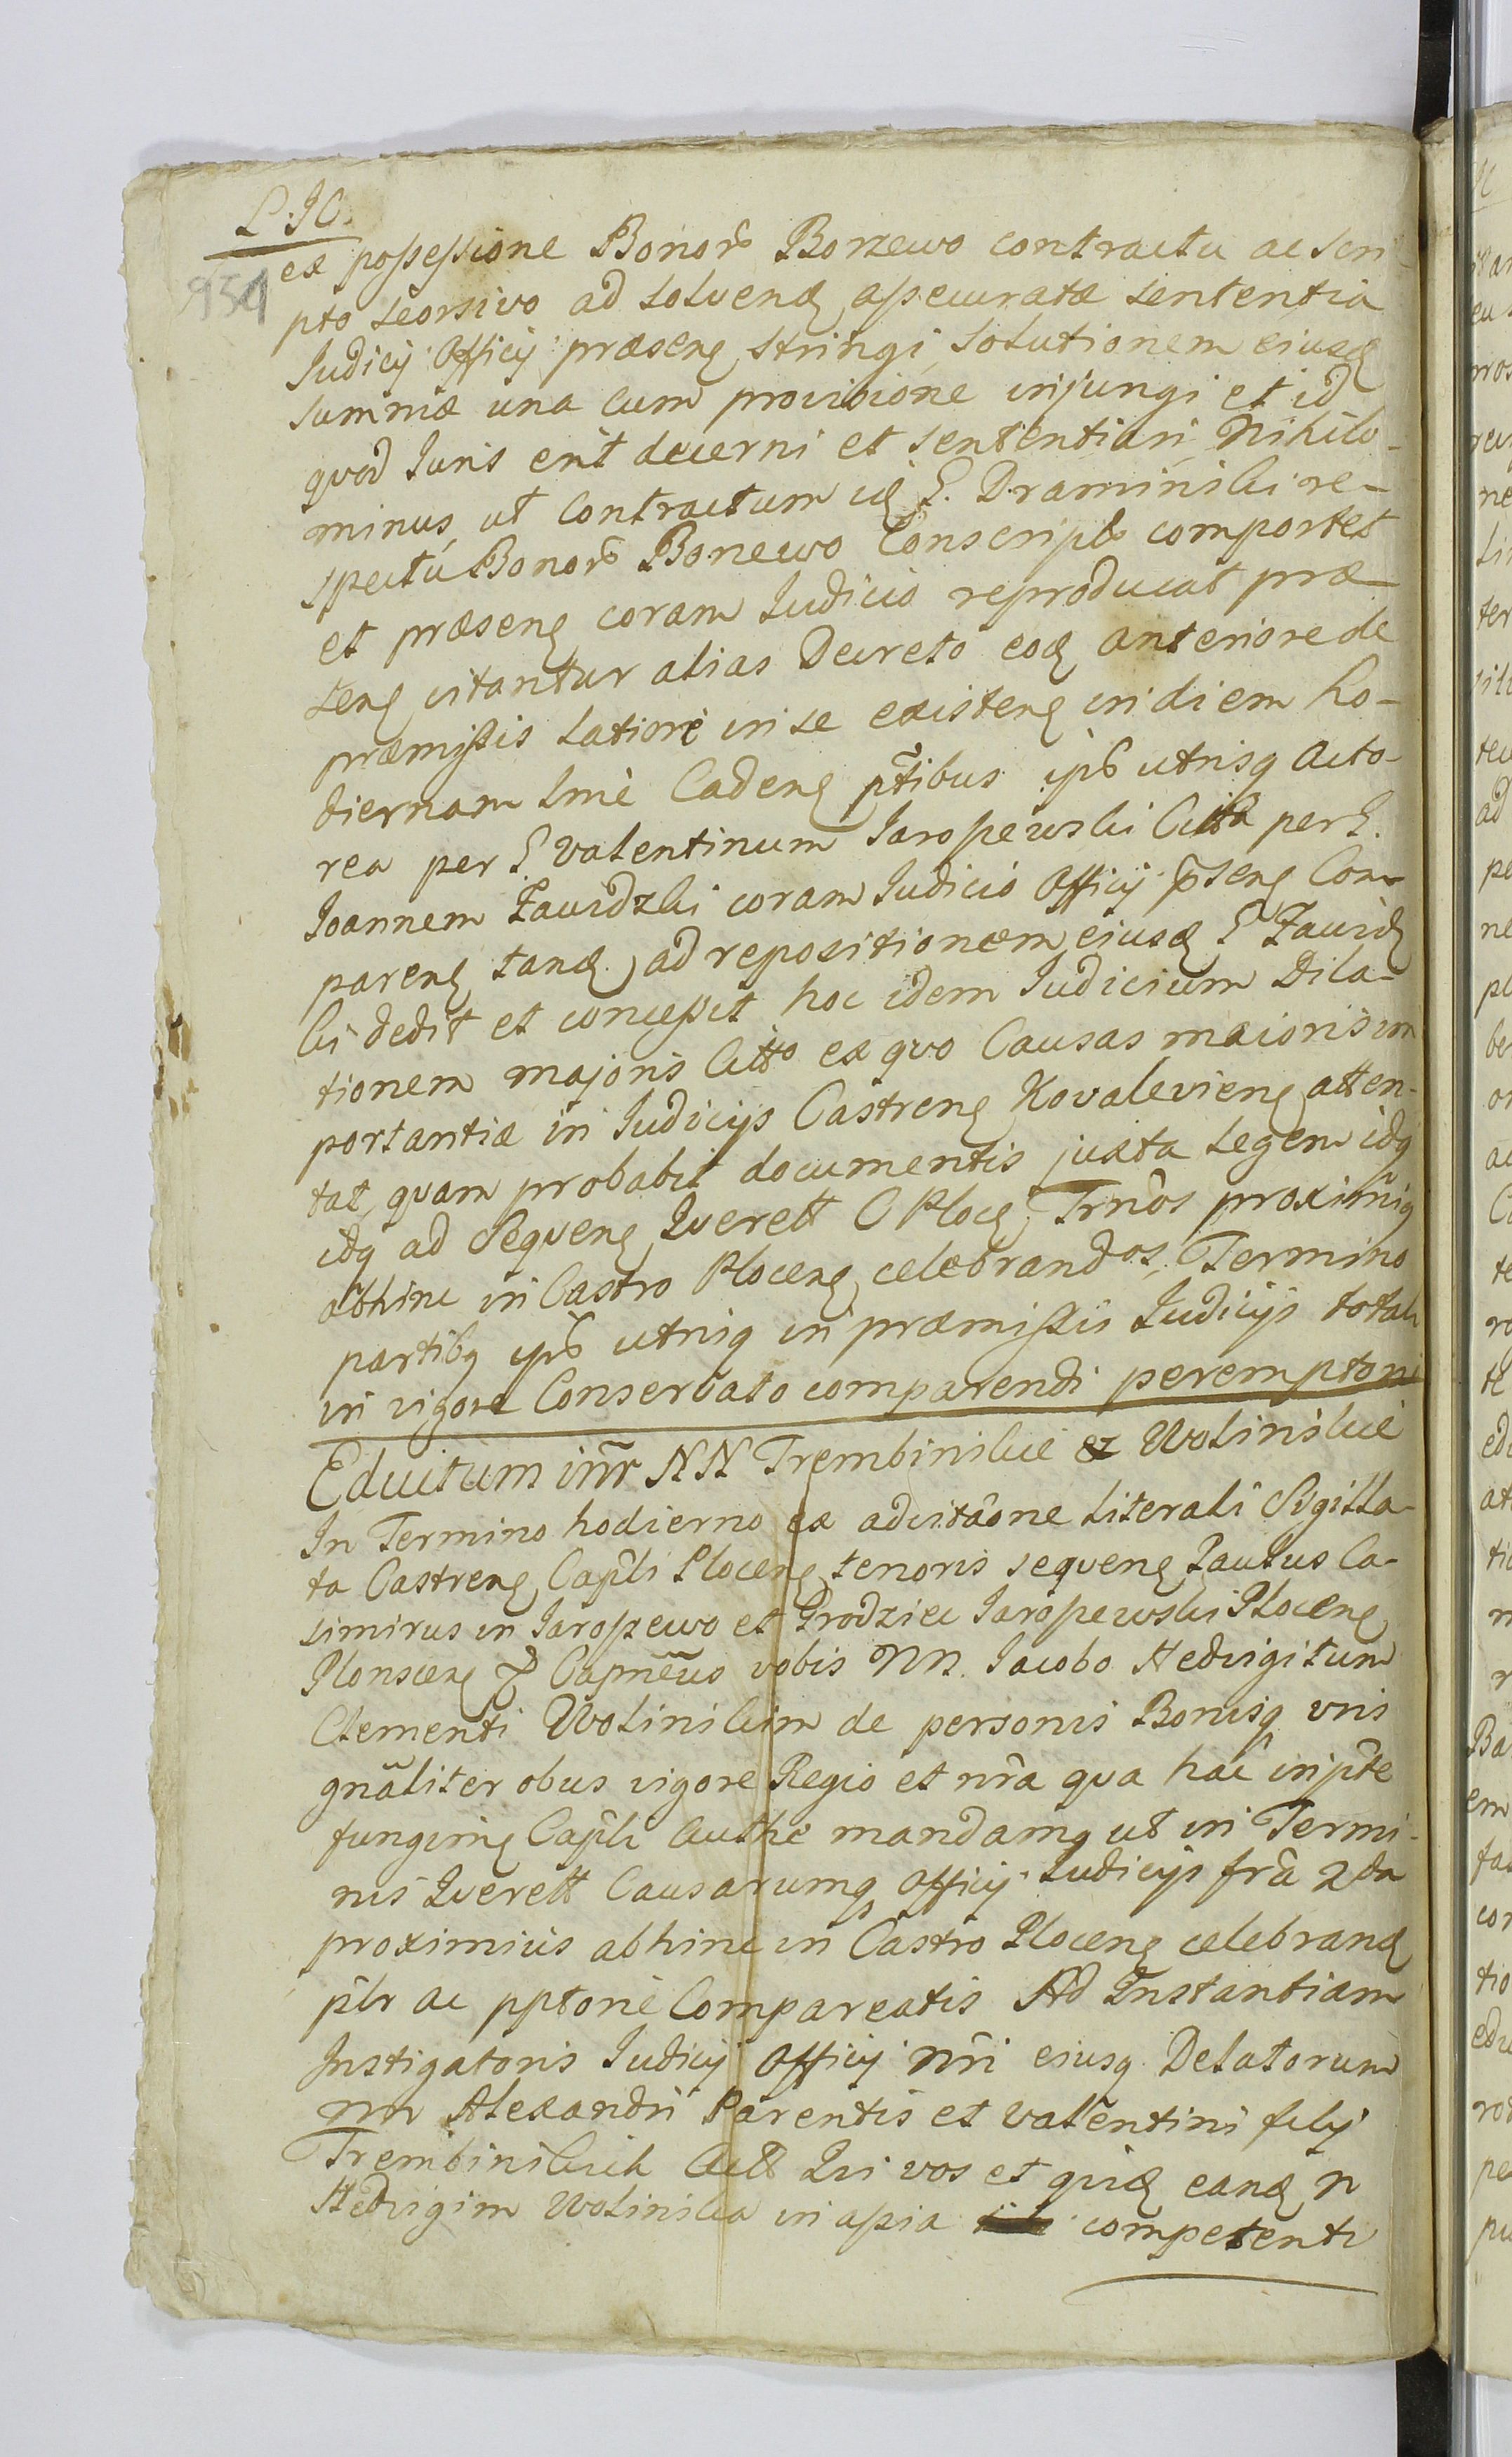 P. JC.
934
ex possessione Bonor̃ Borzewo contractu ac scri-
pto seorsivo ad solvend assecuratæ sententia
Judicij Officij præsens stringi solutionem eiusd
summæ una cum provisione injungi et id
quod Juris erit decerni et sententiari Nihilo-
minus ut Contractum id G. Draminski re-
spectu Bonor̃ Borzewo Conscript comportet
et præsens coram Judicio reproducat præ-
sens citantur alias Decreto eod anteriore de
præmissis latiore in se existens in diem ho-
diernam Lmè Cadens p̃tibus ips utrisq Acto-
rea per G. Valentinum Jaroszewski Citta per G.
Joannem Zawidzki coram Judicio Officij p̃sens Com-
parens tand ad repositionem eiusd G Zawidz
ki dedit et concessit hoc idem Judicium Dila-
tionem majoris Citto ex quo Causas maioris im
portantiæ in Judicijs Castrens Kovaleviens atten-
tat, quam probabit documentis juxta legem idq
idq ad Sequens Querell O Ploce Trm̃os proximiq
abhinc in Castro Plocens celebrandos, Termino
partibq ips utriq in præmissis Judicijs total
in vigore Conservato comparendi peremptorii
Educitum iñr NN Trembinskie & Wolinskie
In Termino hodierno ex adcitãone Literali Sigilla-
ta Castrens Cap̃li Plocens tenoris sequens Paulus Ca-
simirus in Jaroszewo et Grodziec Jaroszewski Plocens
Plonscens & Capñeus vobis NN. Jacobo Hedvigi tum
Clementi Wolinskim de personis Bonisq vris
gnãliter obus vigore Regio et nr̃a qua hac in p̃te
fungimq Cap̃li Authe mandamq ut in Termi-
nis Querell Causarumq Officij Judicijs fr̃a 2da
proximius abhinc in Castro Plocens celebrand
p̃lr ac pptorie Compareatis Ad Instantiam
Instigatoris Judicij Officij nr̃i eiusq Delatorum
nn Alexandri Parentis et Valentini filij
Trembinskich Actt Qui vos et quid eand n
Hedvigim Wolinska in assia competenti